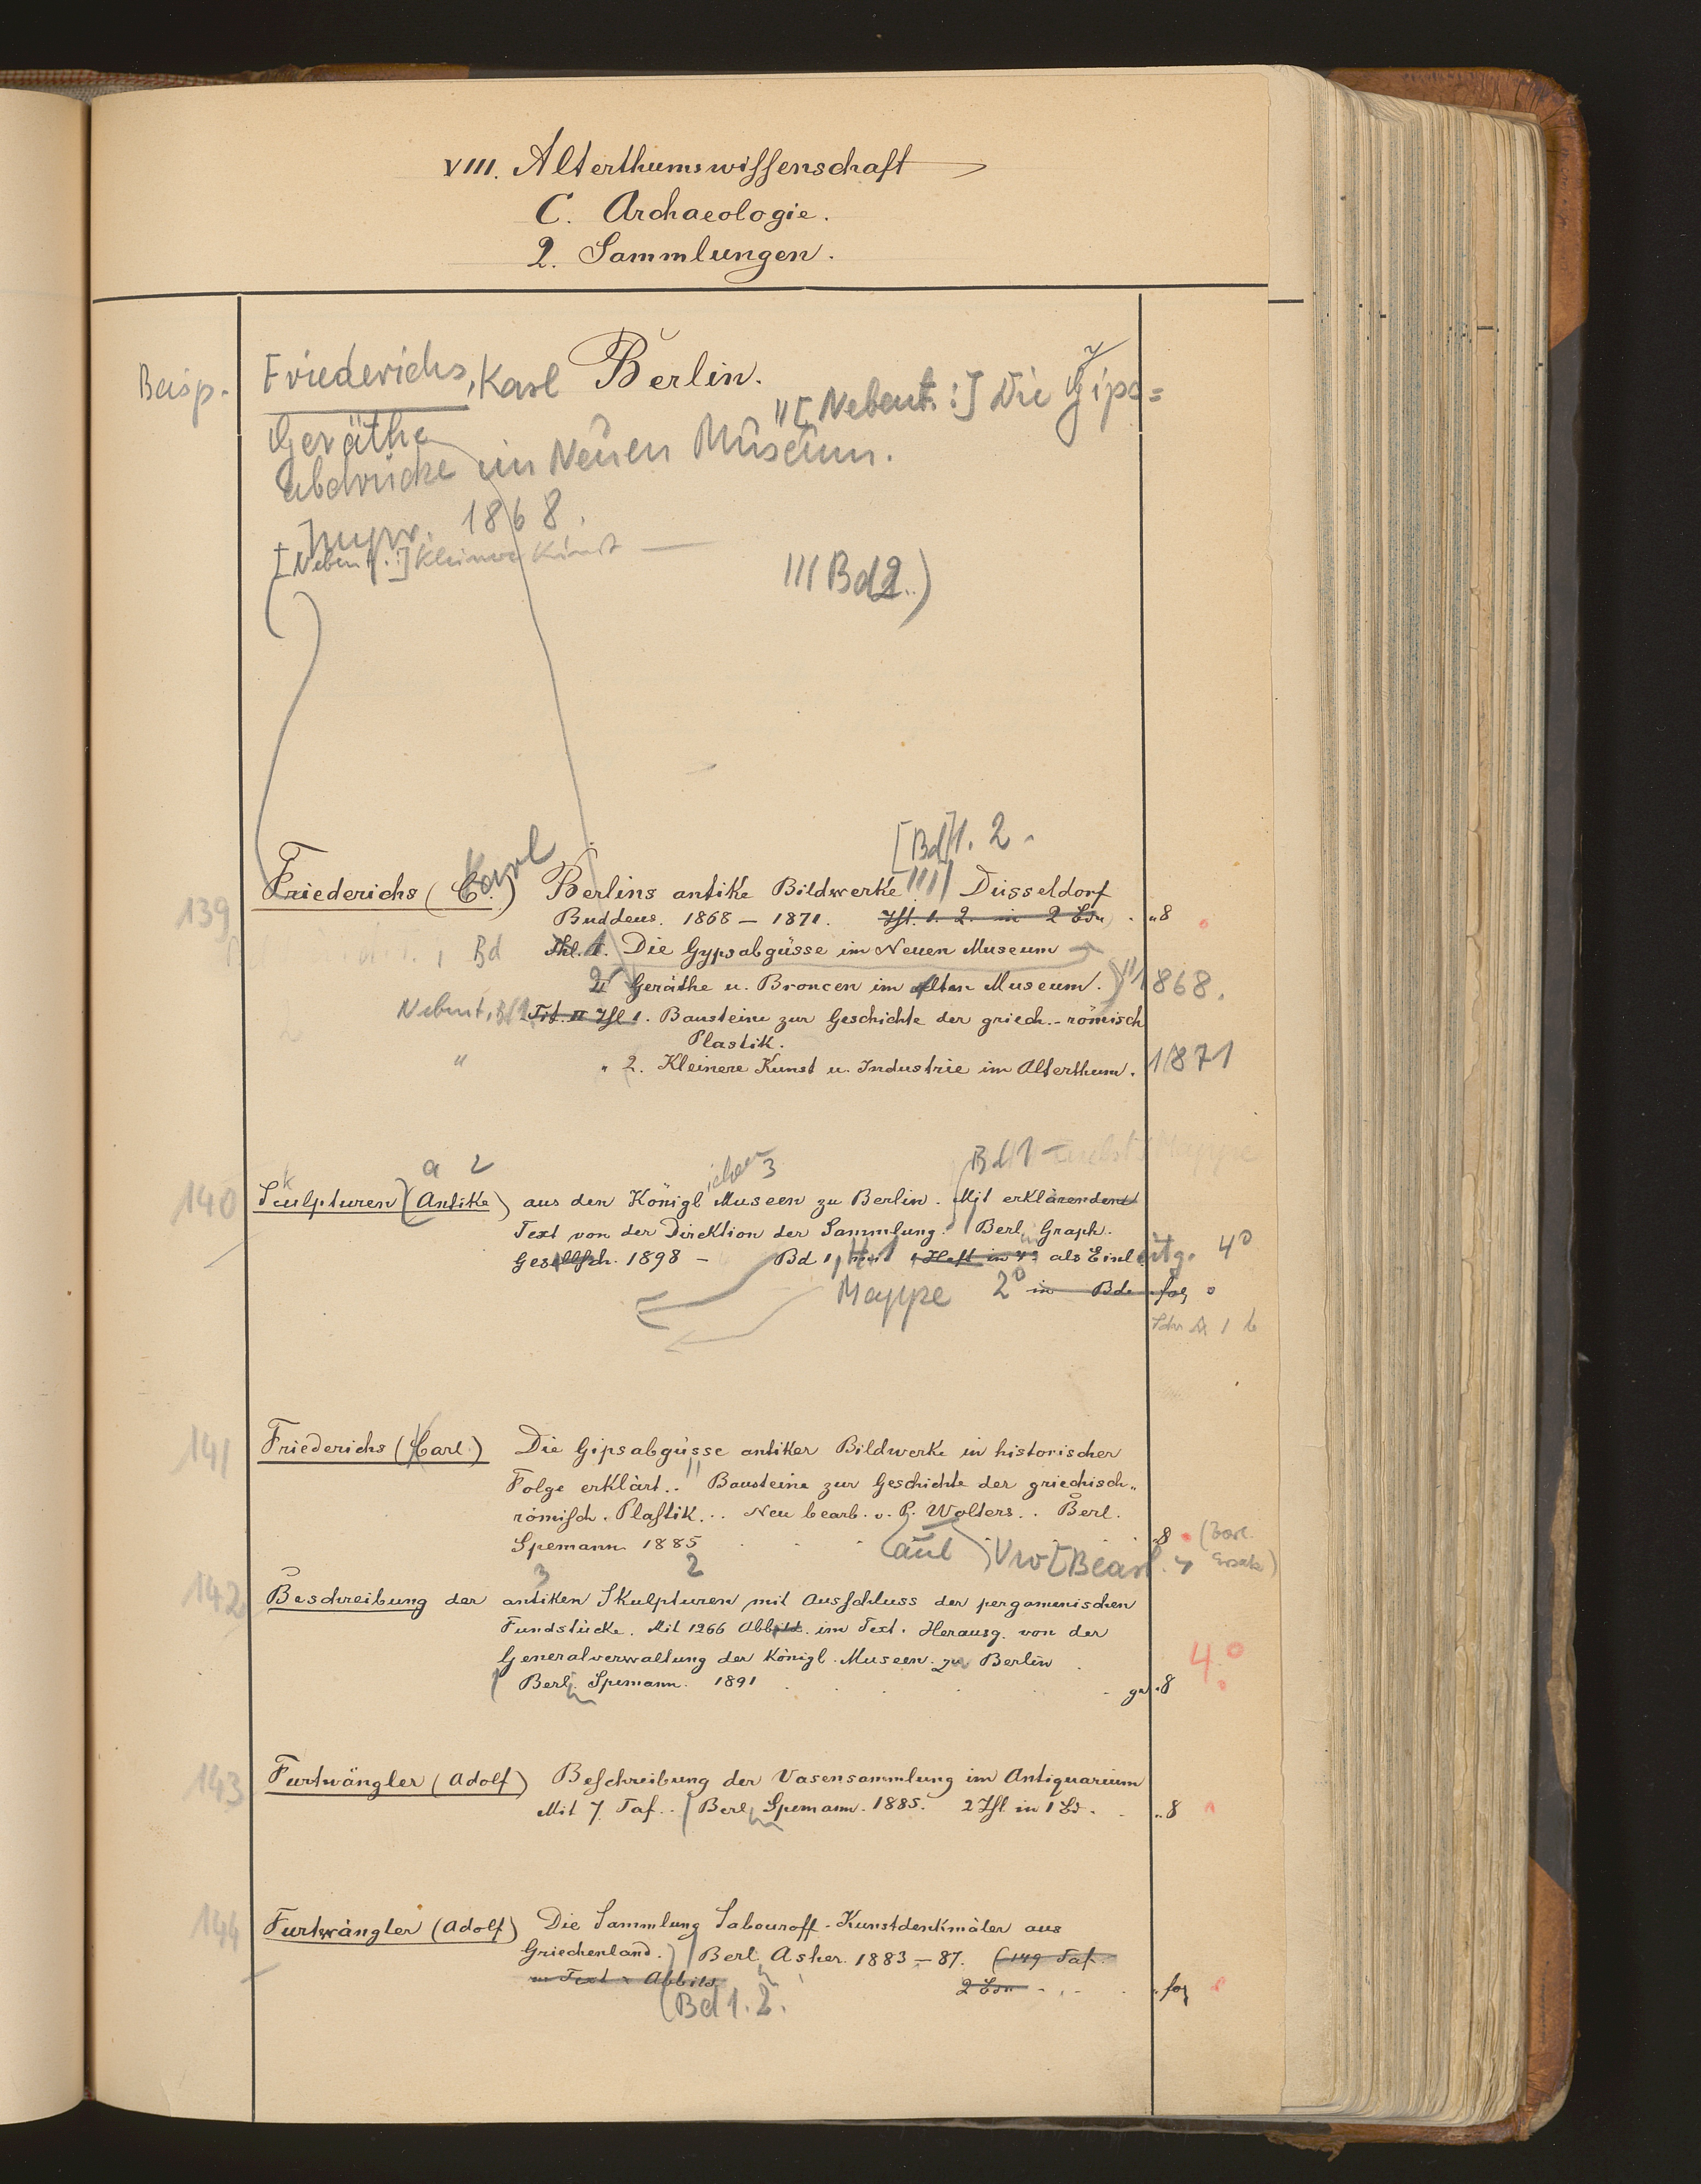 VIII. Alterthumswissenschaft
C. Archaeologie.
2. Sammlungen.
Beisp. Friederichs, Karl Berlin.
"[Nebent.:] Die Gips=
Geräthe
abdrücke im Neuen Museum.
1868.
[Nebent.:] Kleinere Kunst —
III Bd 2.)
[Bd] 1. 2.
139 Friederichs (C.) Carl Berlins antike Bildwerke Düsseldorf
Buddeus. 1868 – 1871. Thl. 1. 2. in 2 Bdn „8
Bd Thl. I. Die Gypsabgüsse im Neuen Museum
II Geräthe u. Broncen im alten Museum.) 1868.
Nebent. Bd 1 Tit. II Thl 1. Bausteine zur Geschichte der griech.-römisch
Plastik.
" " 2. Kleinere Kunst u. Industrie im Alterthum. 1871
a 2 ichen 3 Bd 1 – nebst Mappe
140 Sculpturen (Antike) aus den Königl Museen zu Berlin. Mit erklärendem
Text von der Direktion der Sammlung. Berl. Graph.
Gesellsch. 1898 – Bd 1, mit 1 Heft in 4° als Einleitg. 4°
Mappe 2° in Bde fol
141 Friederichs (Carl) Die Gipsabgüsse antiker Bildwerke in historischer
Folge erklärt.. Bausteine zur Geschichte der griechisch-
römisch. Plastik... Neu bearb. v. P. Wolters.. Berl.
Spemann. 1885 8
(aul) Vw [Bearb.
3 2
142 Beschreibung der antiken Skulpturen mit Ausschluss der pergamenischen
Fundstücke. Mit 1266 Abbild. im Text. Herausg. von der
Generalverwaltung der Königl. Museen. zu Berlin
4°
Berl. Spemann. 1891 gr. 8
143 Furtwängler (Adolf) Beschreibung der Vasensammlung im Antiquarium
Mit 7 Taf.. Berl. Spemann. 1885. 2 Thl. in 1 Bd. „8
144 Furtwängler (Adolf) Die Sammlung Sabouroff. Kunstdenkmäler aus
Griechenland. Berl. Asher. 1883 – 87. (149 Taf.
m Text u Abbild. 2 Bdn fol
(Bd 1. 2.